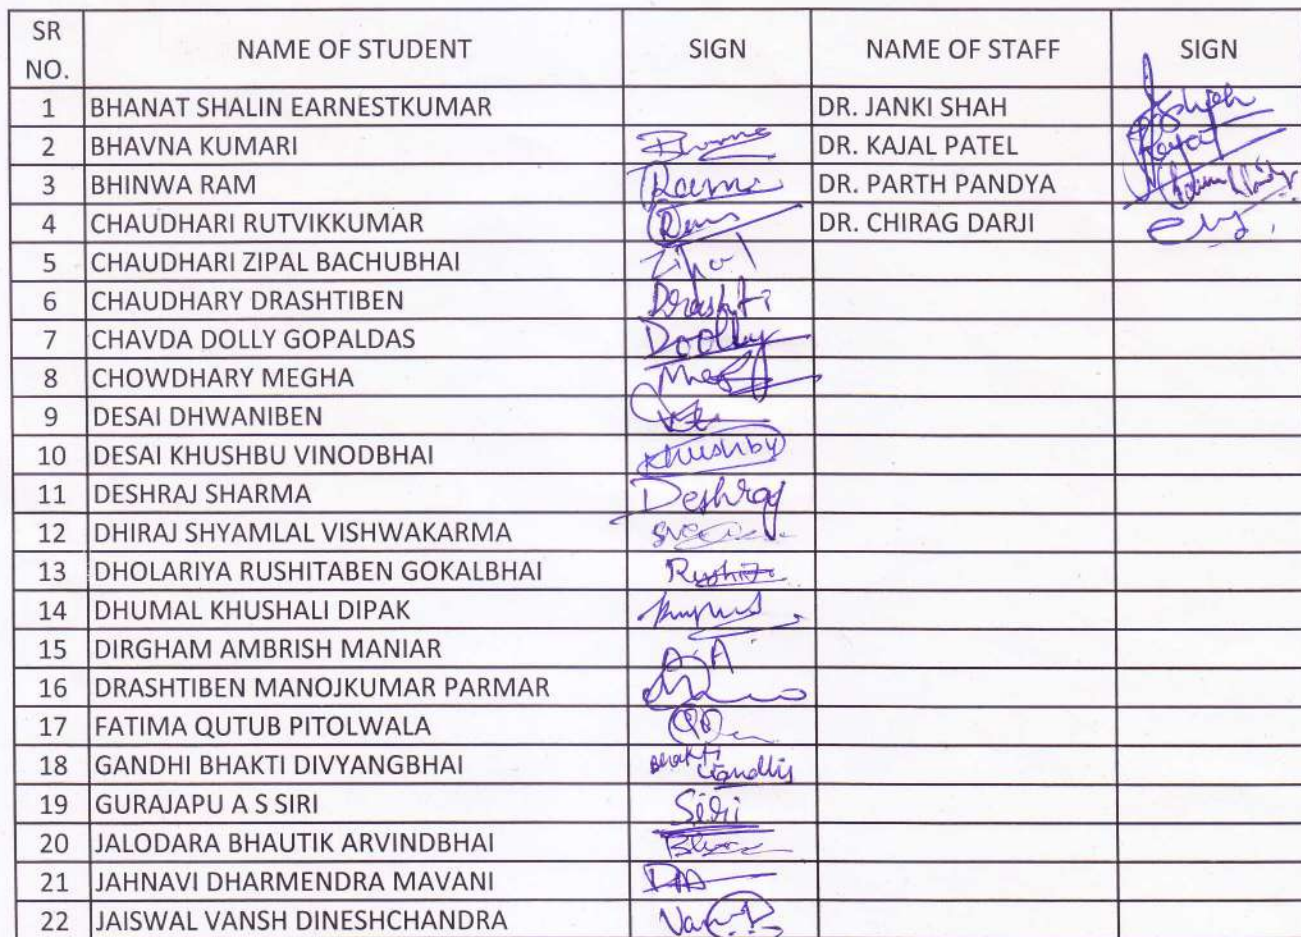 SR NO. NAME OF STUDENT SIGN NAME OF STAFF SIGN
1 BHANAT SHALIN EARNESTKUMAR DR. JANKI SHAH
2 BHAVNA KUMARI DR. KAJAL PATEL
3 BHINWA RAM DR. PARTH PANDYA
4 CHAUDHARI RUTVIKKUMAR DR. CHIRAG DARJI
5 CHAUDHARI ZIPAL BACHUBHAI Zipal
6 CHAUDHARY DRASHTIBEN Drashti
7 CHAVDA DOLLY GOPALDAS Doolly
8 CHOWDHARY MEGHA
9 DESAI DHWANIBEN
10 DESAI KHUSHBU VINODBHAI Khushbu
11 DESHRAJ SHARMA Deshraj
12 DHIRAJ SHYAMLAL VISHWAKARMA
13 DHOLARIYA RUSHITABEN GOKALBHAI
14 DHUMAL KHUSHALI DIPAK
15 DIRGHAM AMBRISH MANIAR
16 DRASHTIBEN MANOJKUMAR PARMAR
17 FATIMA QUTUB PITOLWALA
18 GANDHI BHAKTI DIVYANGBHAI Bhakti Gandhi
19 GURAJAPU A S SIRI Siri
20 JALODARA BHAUTIK ARVINDBHAI
21 JAHNAVI DHARMENDRA MAVANI
22 JAISWAL VANSH DINESHCHANDRA